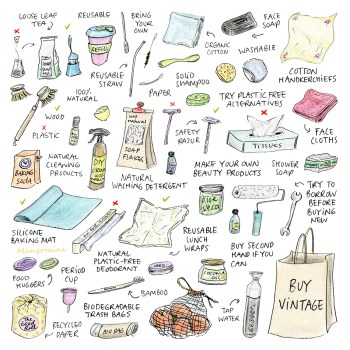 LOOSE LEAF
TEA
REUSABLE
BRING
YOUR
OWN
FACE
SOAP
REFILL
ORGANIC
COTTON
WASHABLE
REUSABLE
STRAW
SOLID
SHAMPOO
COTTON
HANDKERCHIEFS
100%
NATURAL
PAPER
TRY PLASTIC FREE
ALTERNATIVES
WOOD
PLASTIC
SOAP
FLAKES
SAFETY
RAZOR
TISSUES
FACE
CLOTHS
BAKING
SODA
NATURAL
CLEANING
PRODUCTS
DIY
NATURAL
WASHING DETERGENT
MAKE YOUR OWN
BEAUTY PRODUCTS
SHOWER
SOAP
ALOE
VERA
TRY TO
BORROW
BEFORE
BUYING
NEW
SILICONE
BAKING MAT
REUSABLE
LUNCH
WRAPS
BUY SECOND
HAND IF YOU
CAN
NATURAL
PLASTIC-FREE
DEODORANT
COCONUT
OIL
FOOD
HUGGERS
PERIOD
CUP
BAMBOO
BIODEGRADABLE
TRASH BAGS
BIO BAG
TAP
WATER
BUY
VINTAGE
RECYCLED
PAPER